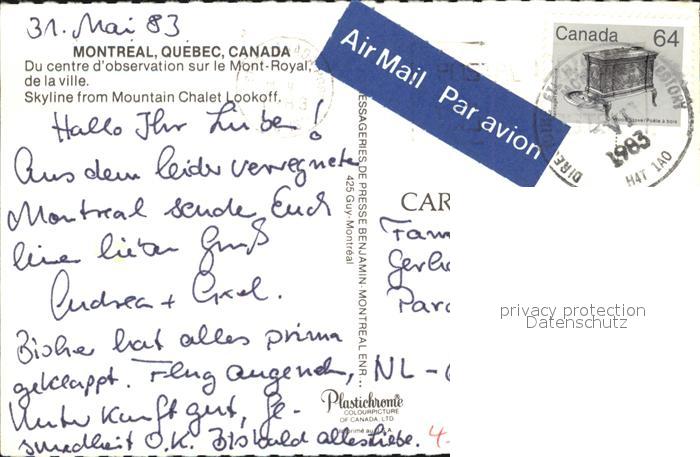 31. Mai 83
MONTREAL, QUEBEC, CANADA
Du centre d'observation sur le Mont-Royal,
de la ville.
Skyline from Mountain Chalet Lookoff.
Hallo Ihr Lieben!
Aus dem leider verregneten
Montreal sende Euch
liebe Gruß
Andrea + Axel.
Bisher hat alles prima
geklappt. Flug angenehm,
Unterkunft gut, Ge-
sundheit O.K. Bis bald alles Liebe.
Air Mail Par avion
Canada 64
1983
H4T 1A0
MESSAGERIES DE PRESSE BENJAMIN-MONTREAL ENR..
425 Guy-Montréal
CAR
Fam
Gerh
Par
NL -
Plastichrome
COLOURPICTURE
OF CANADA, LTD.
4-
privacy protection
Datenschutz